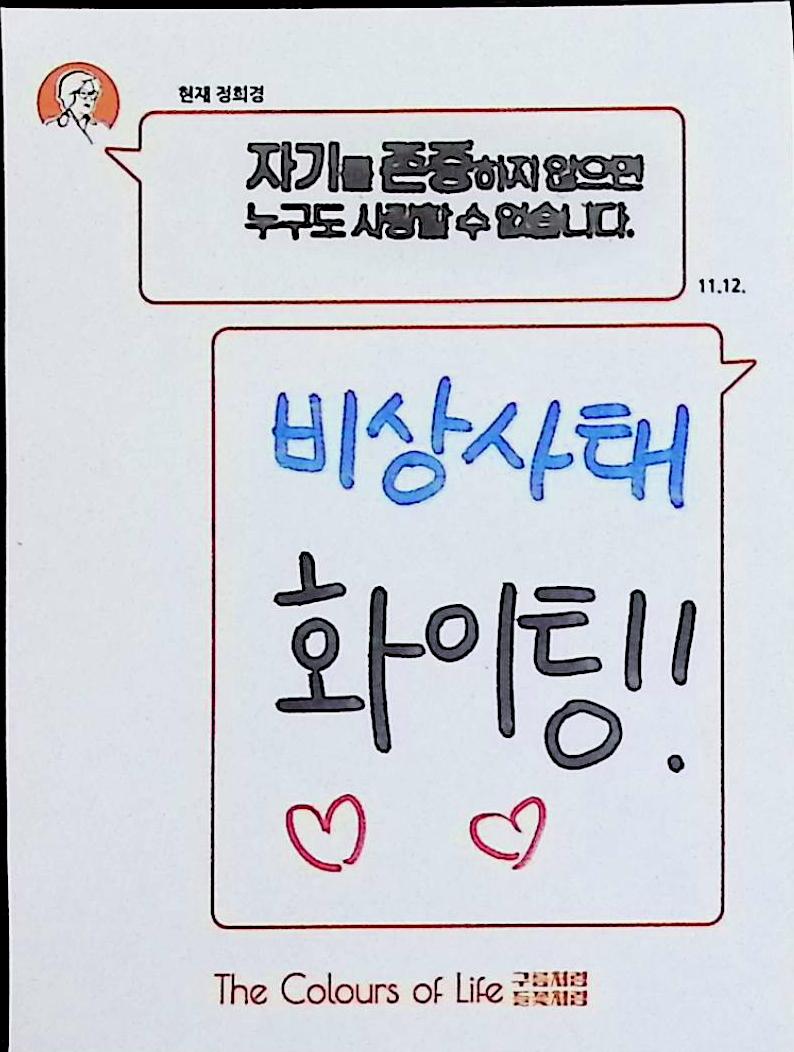 현재 정희경
자기를 존중하지 않으면
누구도 사랑할 수 없습니다.
11.12.
비상사태
화이팅!!
The Colours of Life 구름처럼
들꽃처럼